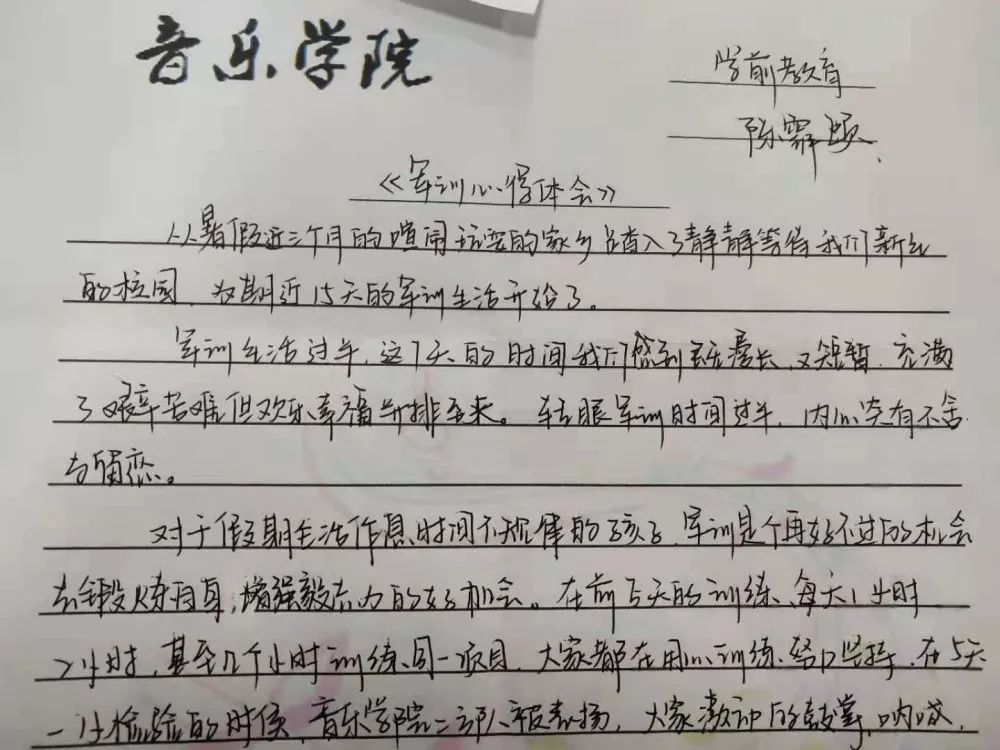 音乐学院
学前教育
陈霏
《军训心得体会》
从暑假近三个月的喧闹玩耍的家乡踏入了静静等待我们新生
的校园，为期近15天的军训生活开始了。
军训生活过半，这7天的时间我们感到既漫长，又短暂，充满
了艰辛苦难但欢乐幸福并排至来。转眼军训时间过半，内心突有不舍
与留恋。
对于假期生活作息时间不规律的孩子，军训是个再好不过的机会
去锻炼自身，增强毅志力的好机会。在前5天的训练、每天1小时
2小时，甚至几个小时训练同一项目，大家都在用心训练、坚持，在5天
一次检验的时候，音乐学院二部人被表扬，大家激动的鼓掌，呐喊，